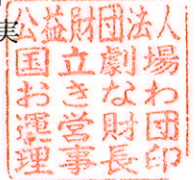 実
公益財団法人
国立劇場
おきなわ
運営財団
理事長印